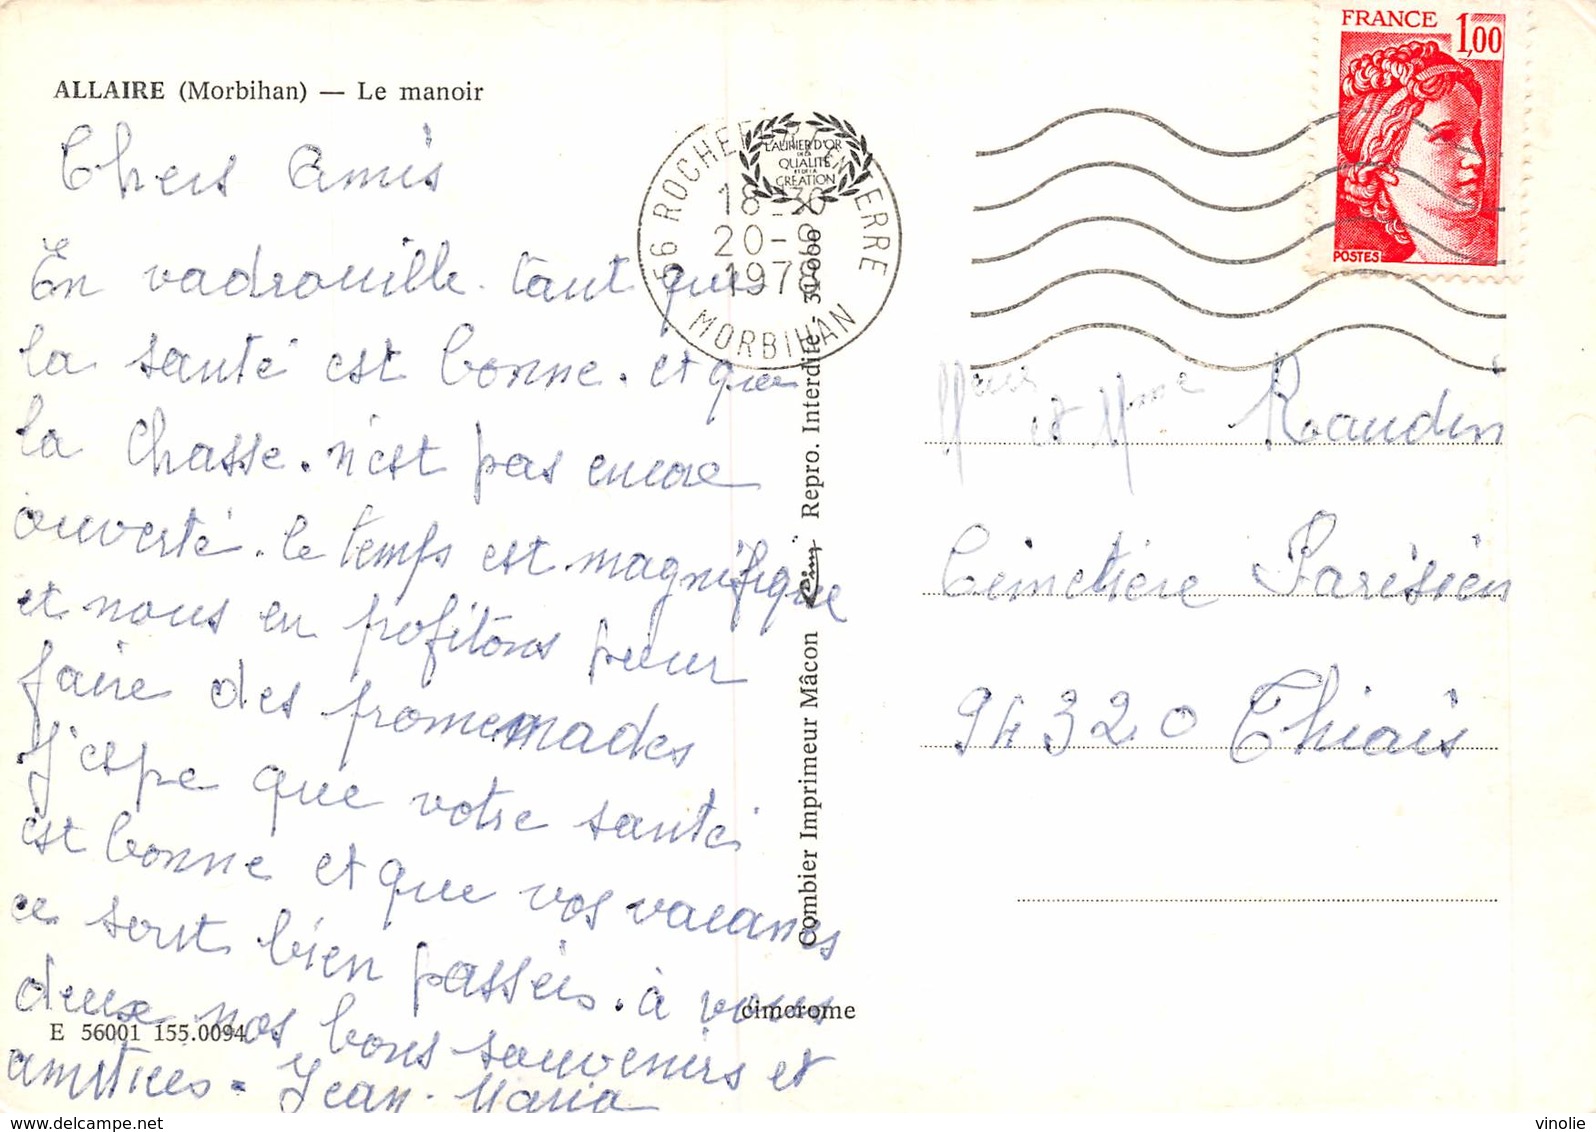 ALLAIRE (Morbihan) — Le manoir
Chers Amis
En vadrouille. tant que
la santé est bonne. et que
la chasse. n'est pas encore
ouverte. le temps est magnifique
et nous en profitons pour
faire des promemades
J'espe que votre santé
est bonne et que vos vacances
ce sont bien passéis. à vous
deux nos bons souvenirs et
amitiées. Jean. Maria
E 56001 155.0094
cimcrome
Combier Imprimeur Mâcon Cim Repro. Interdite, 31-000
LAURIER D'OR
DE LA
QUALITÉ
ET DE LA
CRÉATION
56 ROCHEFORT EN TERRE
18-30
20-9
1978
MORBIHAN
FRANCE 1,00
POSTES
Meur et Mme Raudin
Cimetière Parisien
94320 Thiais
www.delcampe.net
vinolie